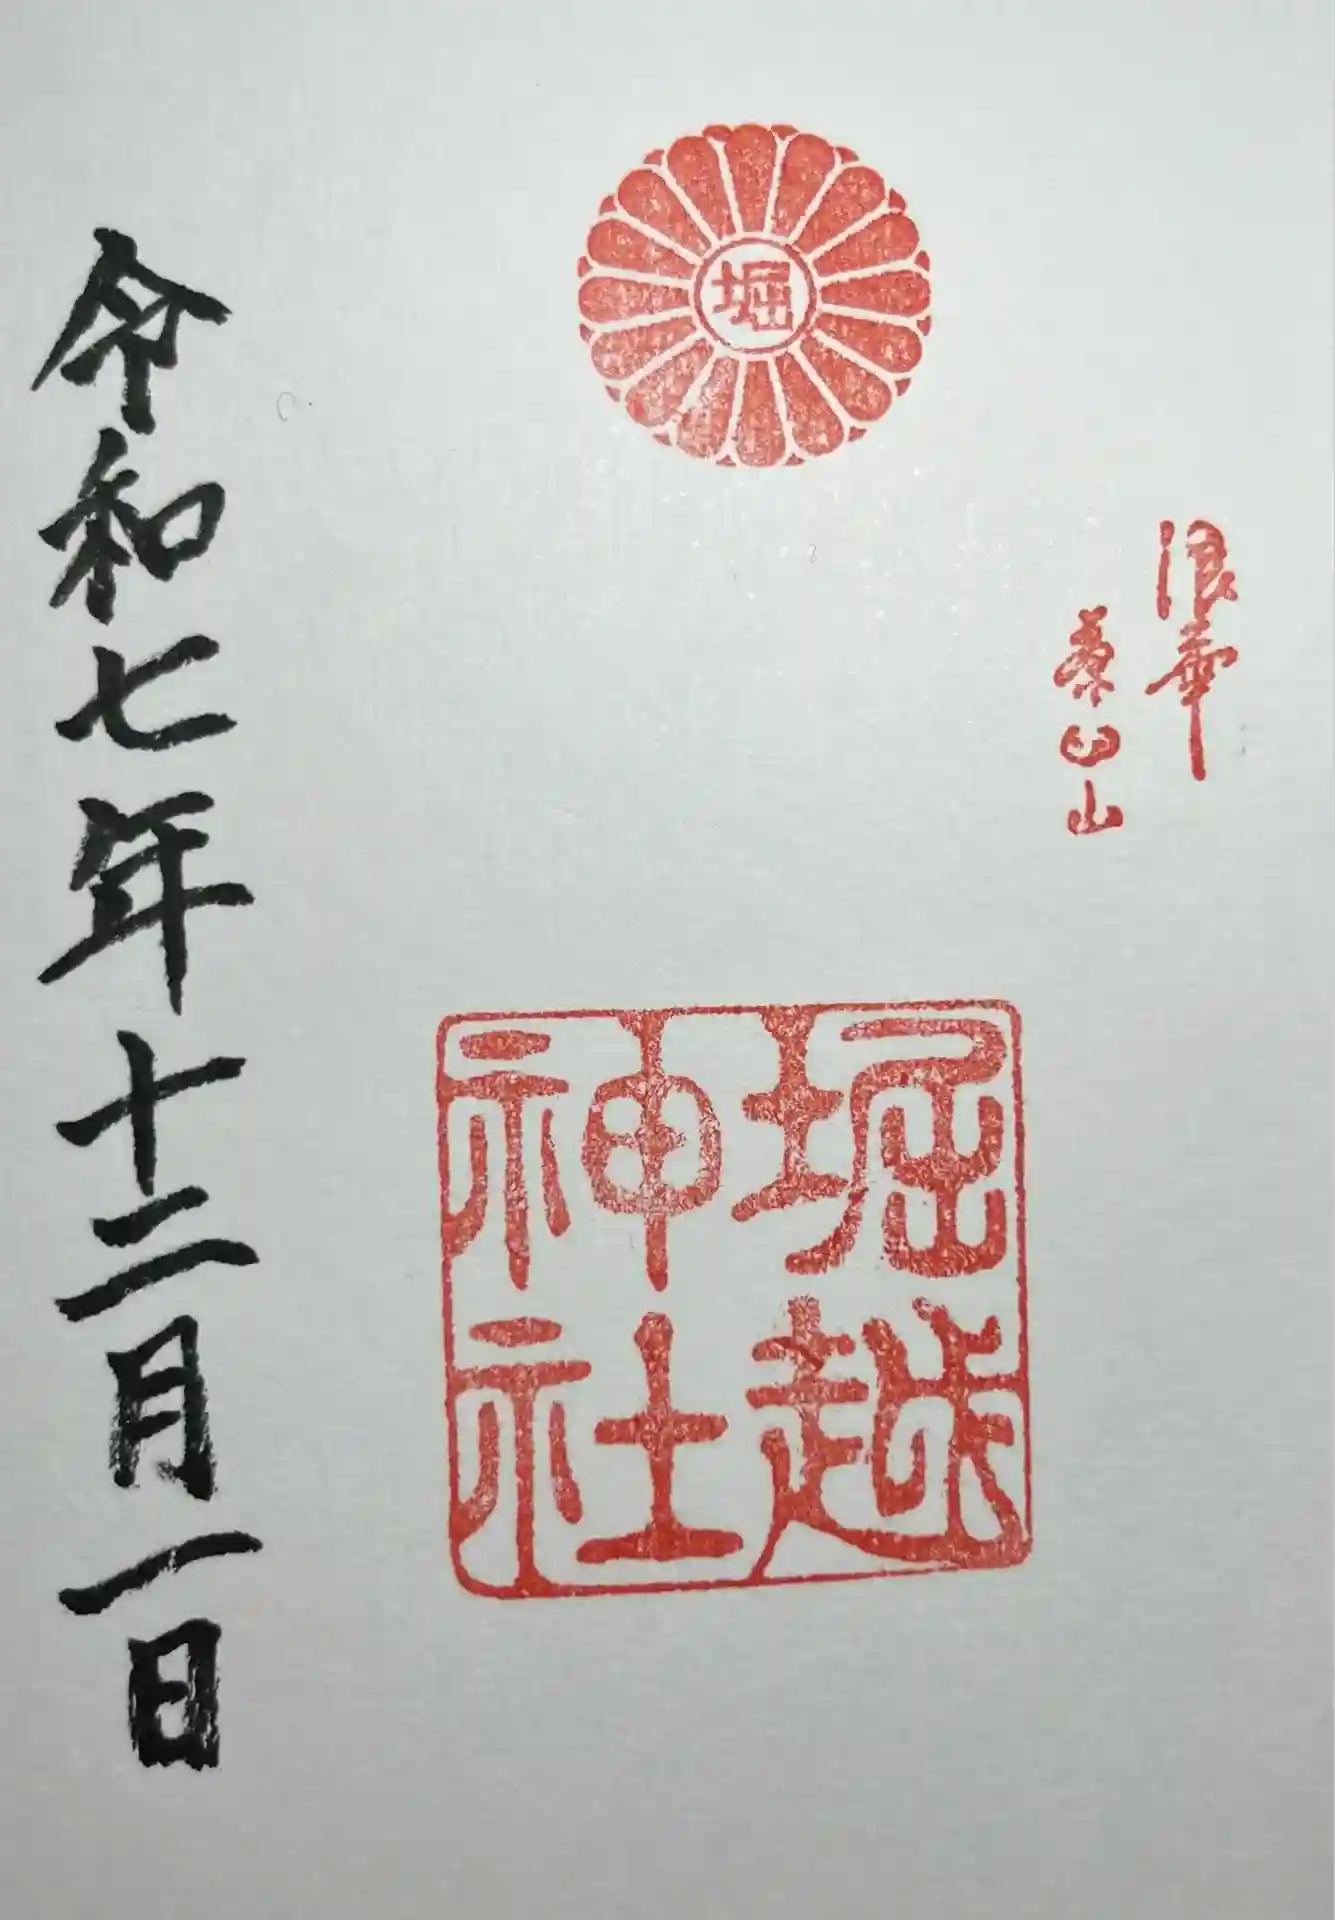 浪華
茶臼山
堀
堀越
神社
令和七年十二月一日